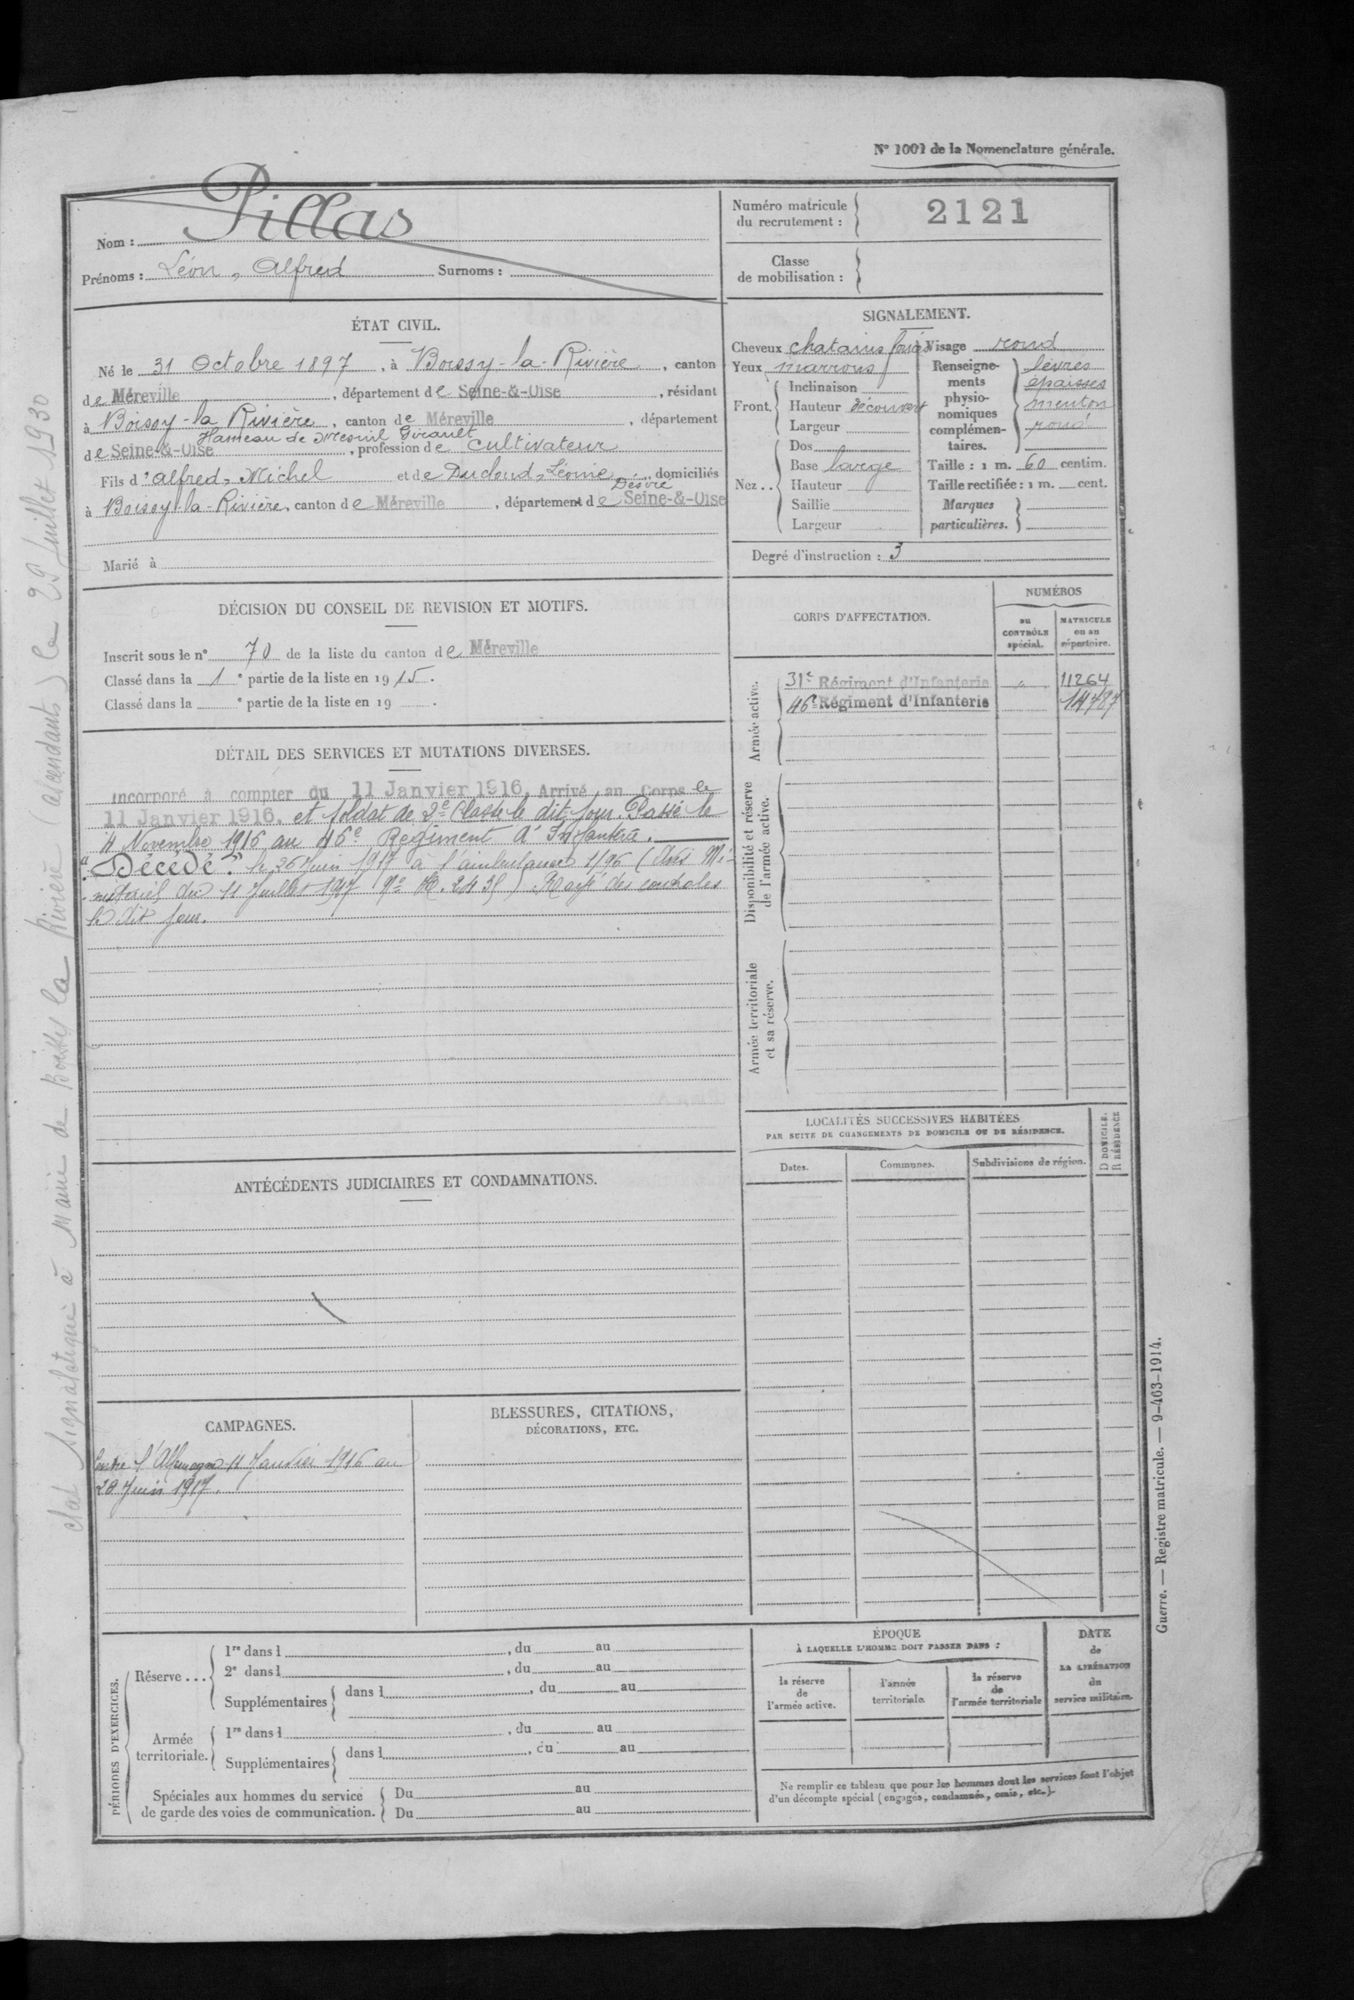 N° 1001 de la Nomenclature générale.
Nom : Pillas
Prénoms : Léon, Alfred Surnoms :
Numéro matricule du recrutement : 2121
Classe de mobilisation :
ÉTAT CIVIL.
Né le 31 Octobre 1897, à Boissy-la-Rivière, canton
de Méreville, département de Seine-&-Oise, résidant
à Boissy-la-Rivière, canton de Méreville, département
Hameau de Mesnil Girault
de Seine-&-Oise, profession de cultivateur
Fils d'Alfred, Michel et de Duclond, Léonie Désiré, domiciliés
à Boissy-la-Rivière, canton de Méreville, département de Seine-&-Oise
Marié à
SIGNALEMENT.
Cheveux chatains foncés Visage rond
Yeux marrons
Front. Inclinaison
Hauteur découvert
Largeur
Nez.. Dos
Base large
Hauteur
Saillie
Largeur
Renseignements physionomiques complémentaires. lèvres
épaisses
menton
rond
Taille : 1 m. 60 centim.
Taille rectifiée : 1 m. cent.
Marques particulières.
Degré d'instruction : 3
DÉCISION DU CONSEIL DE REVISION ET MOTIFS.
Inscrit sous le n° 70 de la liste du canton de Méreville
Classé dans la 1e partie de la liste en 1915.
Classé dans la e partie de la liste en 19 .
CORPS D'AFFECTATION.
NUMÉROS
au CONTRÔLE spécial.
MATRICULE ou au répertoire.
Armée active.
31e Régiment d'Infanterie " 11264
46e Régiment d'Infanterie 14787
Disponibilité et réserve de l'armée active.
Armée territoriale et sa réserve.
DÉTAIL DES SERVICES ET MUTATIONS DIVERSES.
Incorporé à compter du 11 Janvier 1916. Arrivé au Corps le
11 Janvier 1916, et soldat de 2e Classe le dit jour. Passé le
4 Novembre 1916 au 46e Régiment d'Infanterie.
"Décédé" le 30 Juin 1917 à l'ambulance 1/96 (Avis Mi-
nistériel du 11 Juillet 1917 N° 2435). Rayé des contrôles
le dit jour.
ANTÉCÉDENTS JUDICIAIRES ET CONDAMNATIONS.
LOCALITÉS SUCCESSIVES HABITÉES
PAR SUITE DE CHANGEMENTS DE DOMICILE OU DE RÉSIDENCE.
Dates. Communes. Subdivisions de région. D DOMICILE. R RÉSIDENCE
CAMPAGNES.
Contre l'Allemagne 11 Janvier 1916 au
28 Juin 1917.
BLESSURES, CITATIONS,
DÉCORATIONS, ETC.
PÉRIODES D'EXERCICES.
Réserve... 1re dans l , du au
2e dans l , du au
Supplémentaires dans l , du au
Armée territoriale. 1re dans l , du au
Supplémentaires dans l , du au
Spéciales aux hommes du service Du au
de garde des voies de communication. Du au
ÉPOQUE
À LAQUELLE L'HOMME DOIT PASSER DANS :
la réserve de l'armée active.
l'armée territoriale.
la réserve de l'armée territoriale
DATE de LA LIBÉRATION du service militaire.
Ne remplir ce tableau que pour les hommes dont les services font l'objet
d'un décompte spécial (engagés, condamnés, omis, etc.).
Guerre. — Registre matricule. — 9-463-1914.
état signalétique à Mairie de Boissy la Rivière (ascendants) le 29 Juillet 1930